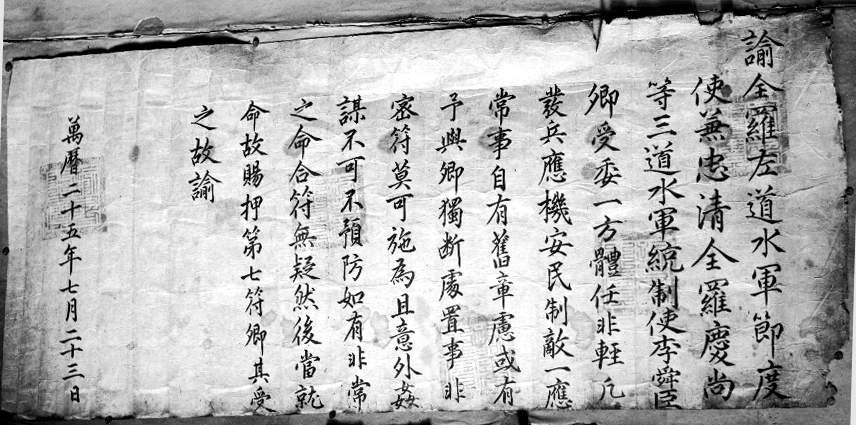 諭全羅左道水軍節度
使蒹忠清全羅慶尚
等三道水軍統制使李舜臣
卿受委一方體任非軽凡
發兵應機安民制敵一應
常事自有舊章慮或有
予與卿獨断處置事非
密符莫可施為且意外姦
謀不可不預防如有非常
之命合符無疑然後當就
命故賜押第七符卿其受
之故諭
萬曆二十五年七月二十三日